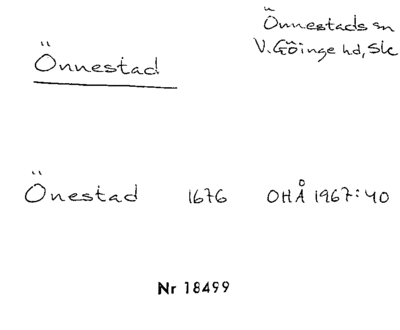 Önnestad
Önnestads sn
V. Göinge hd, Sk
Önestad 1676 OHÅ 1967:40
Nr 18499